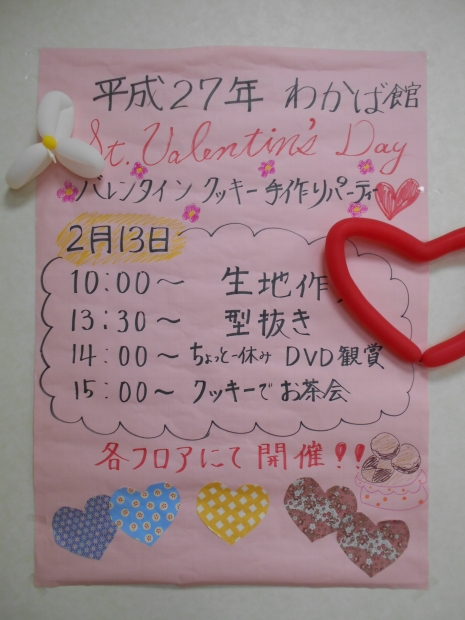 平成27年 わかば館
St. Valentin's Day
バレンタイン クッキー手作りパーティー
2月13日
10:00〜 生地作
13:30〜 型抜き
14:00〜 ちょっと一休み DVD観賞
15:00〜 クッキーでお茶会
各フロアにて開催!!